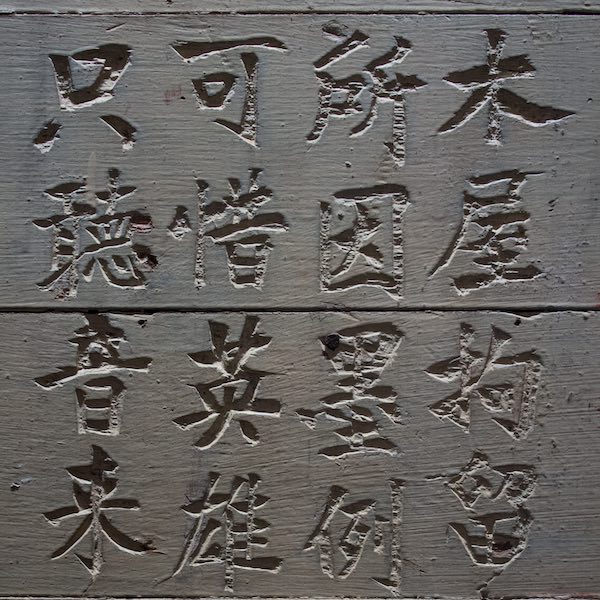 木屋拘留
所因墨例
可惜英雄
只聽音來